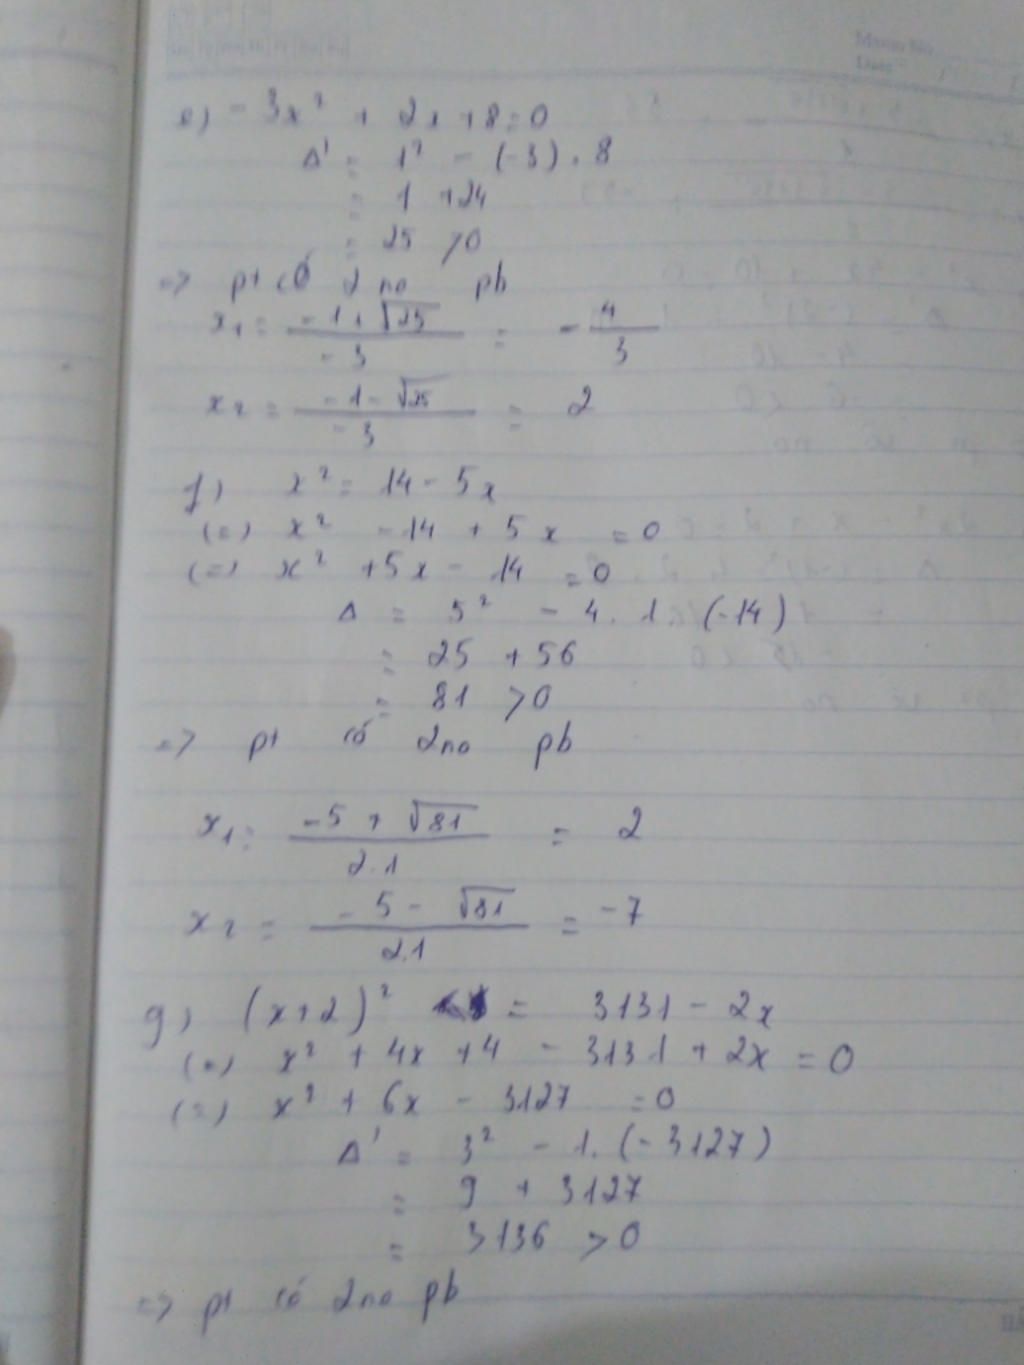 e) -3x² + 2x + 8 = 0
Δ' = 1² - (-3) . 8
= 1 + 24
= 25 > 0
=> pt có 2 no pb
x₁ = (-1 + √25) / -3 = -4/3
x₂ = (-1 - √25) / -3 = 2
f) x² = 14 - 5x
(=) x² - 14 + 5x = 0
(=) x² + 5x - 14 = 0
Δ = 5² - 4 . 1 . (-14)
= 25 + 56
= 81 > 0
=> pt có 2 no pb
x₁ = (-5 + √81) / 2.1 = 2
x₂ = (-5 - √81) / 2.1 = -7
g) (x + 2)² = 3131 - 2x
(=) x² + 4x + 4 - 3131 + 2x = 0
(=) x² + 6x - 3127 = 0
Δ' = 3² - 1. (-3127)
= 9 + 3127
= 3136 > 0
=> pt có 2 no pb